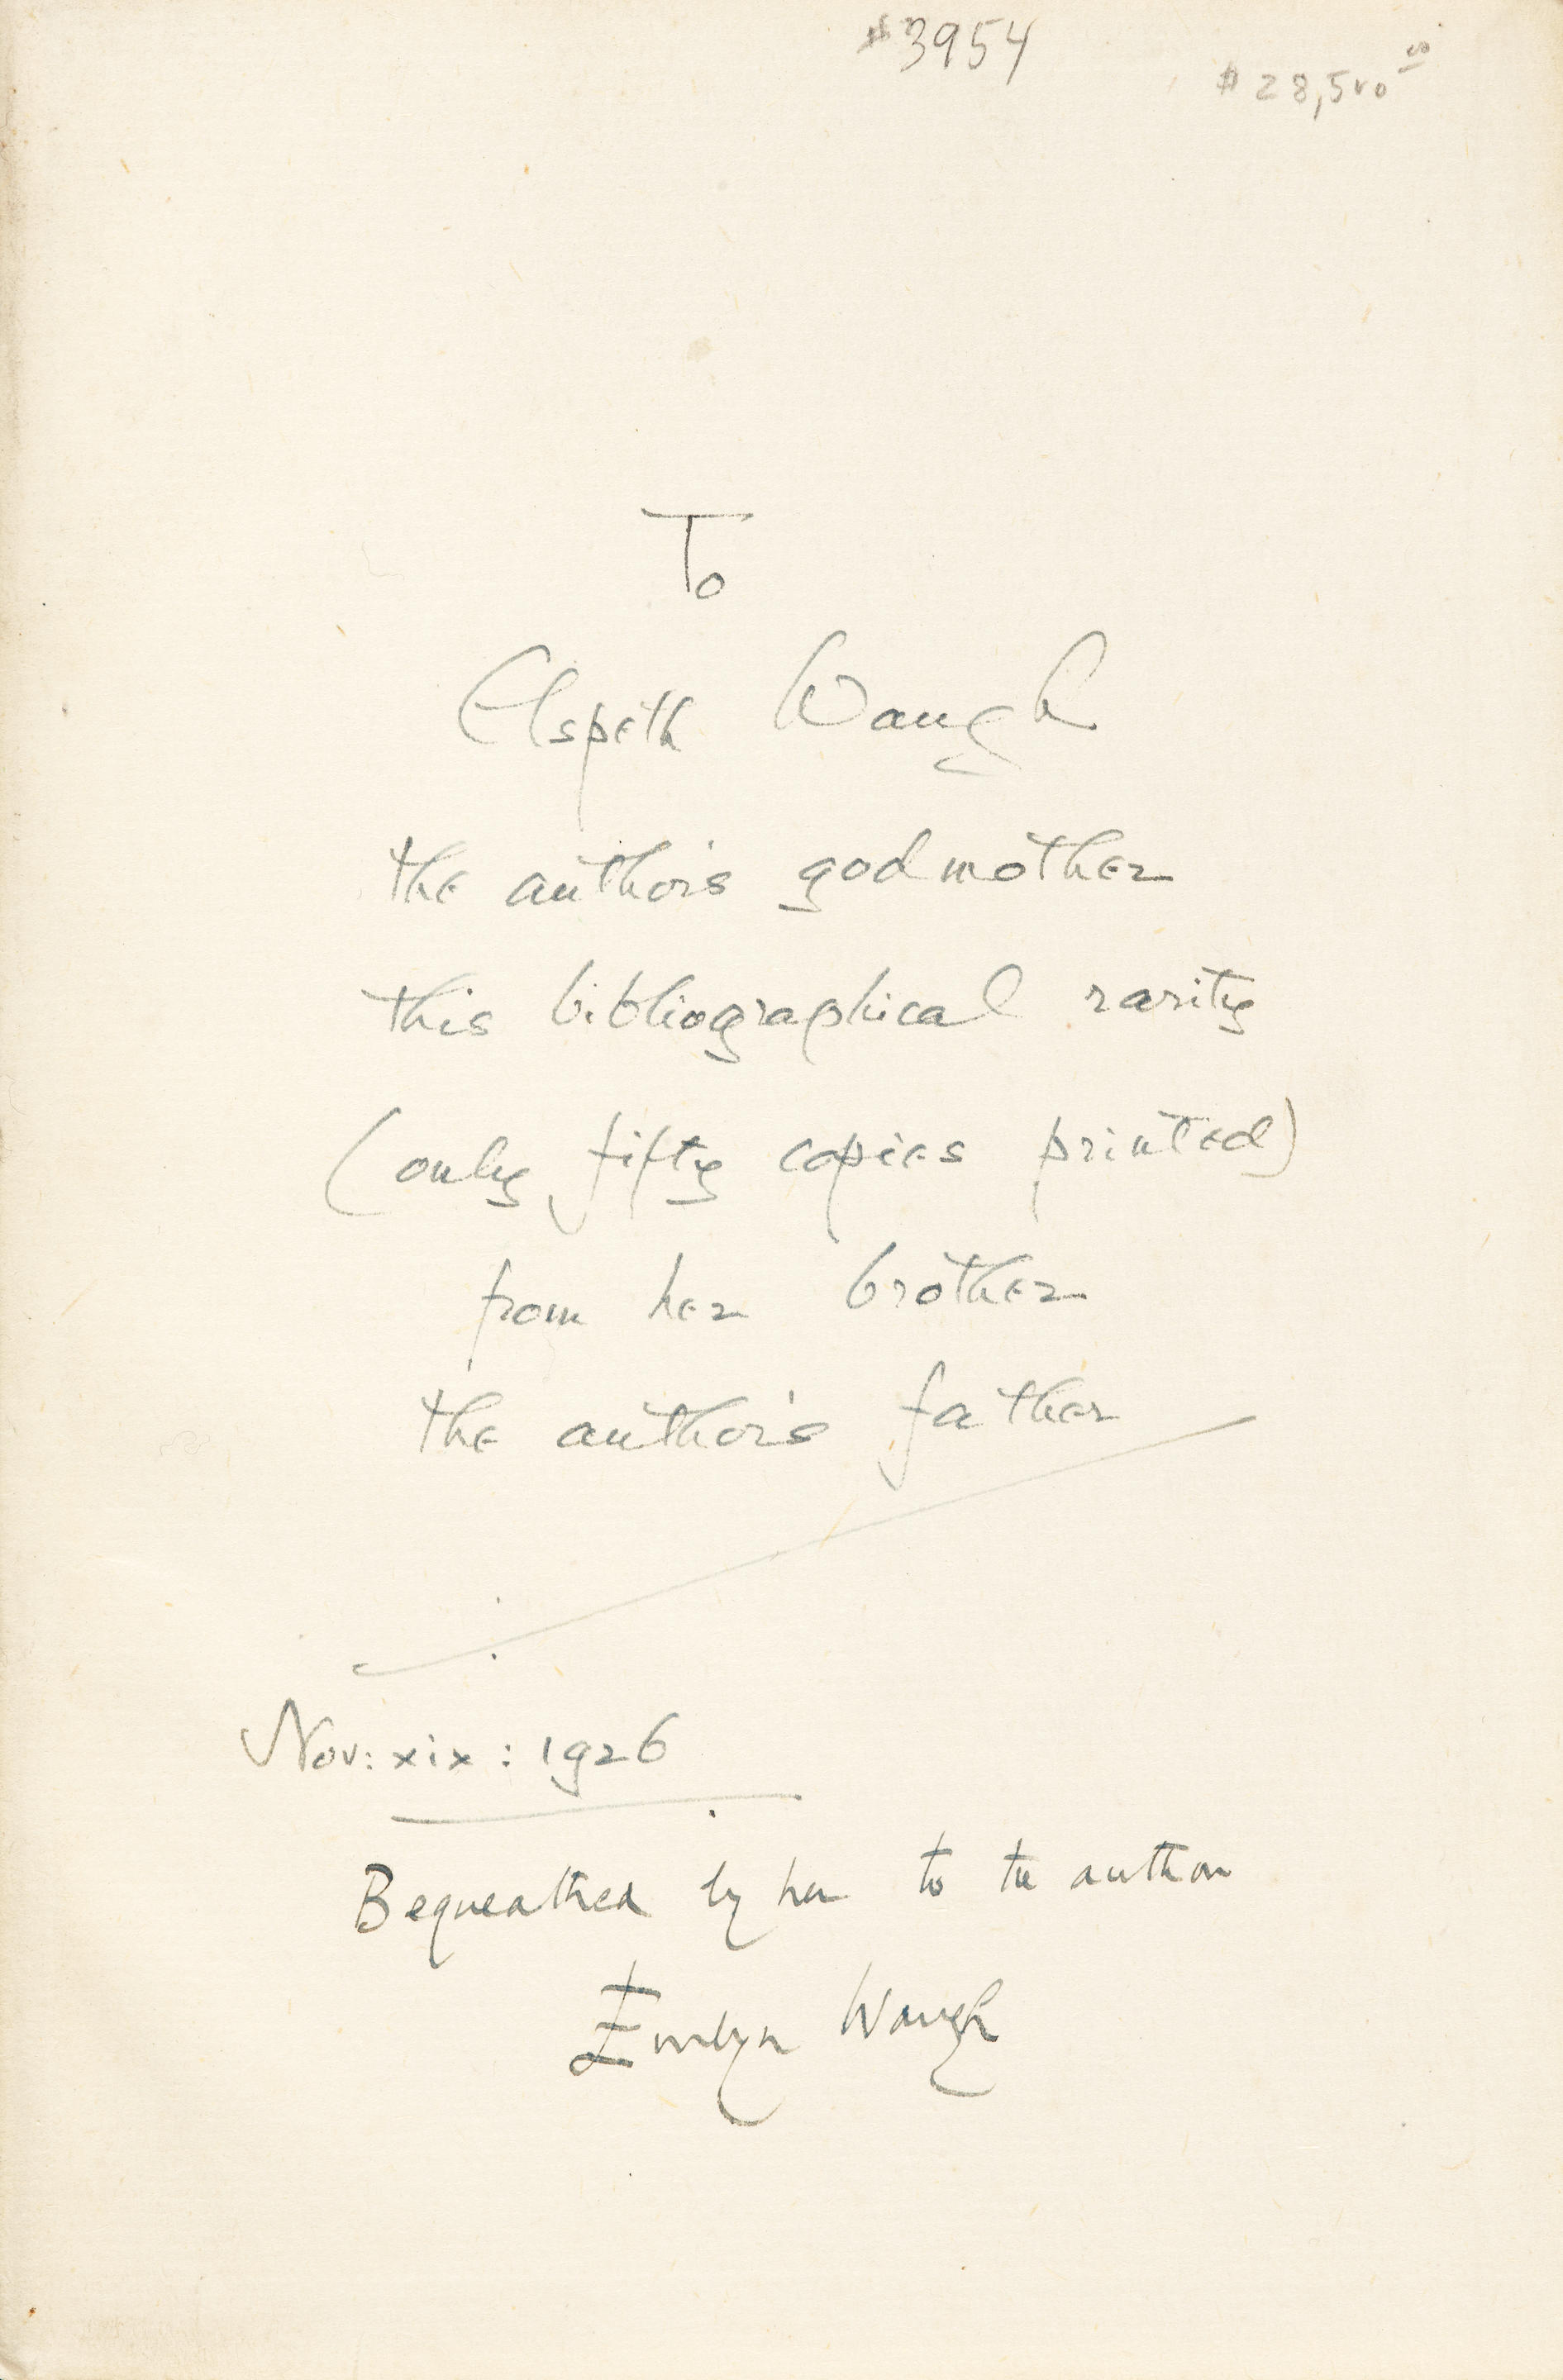 #3954
$28,500 00
To
Elspeth Waugh
the author's godmother
this bibliographical rarity
(only fifty copies printed)
from her brother
the author's father
Nov: xix: 1926
Bequeathed by her to the author
Evelyn Waugh